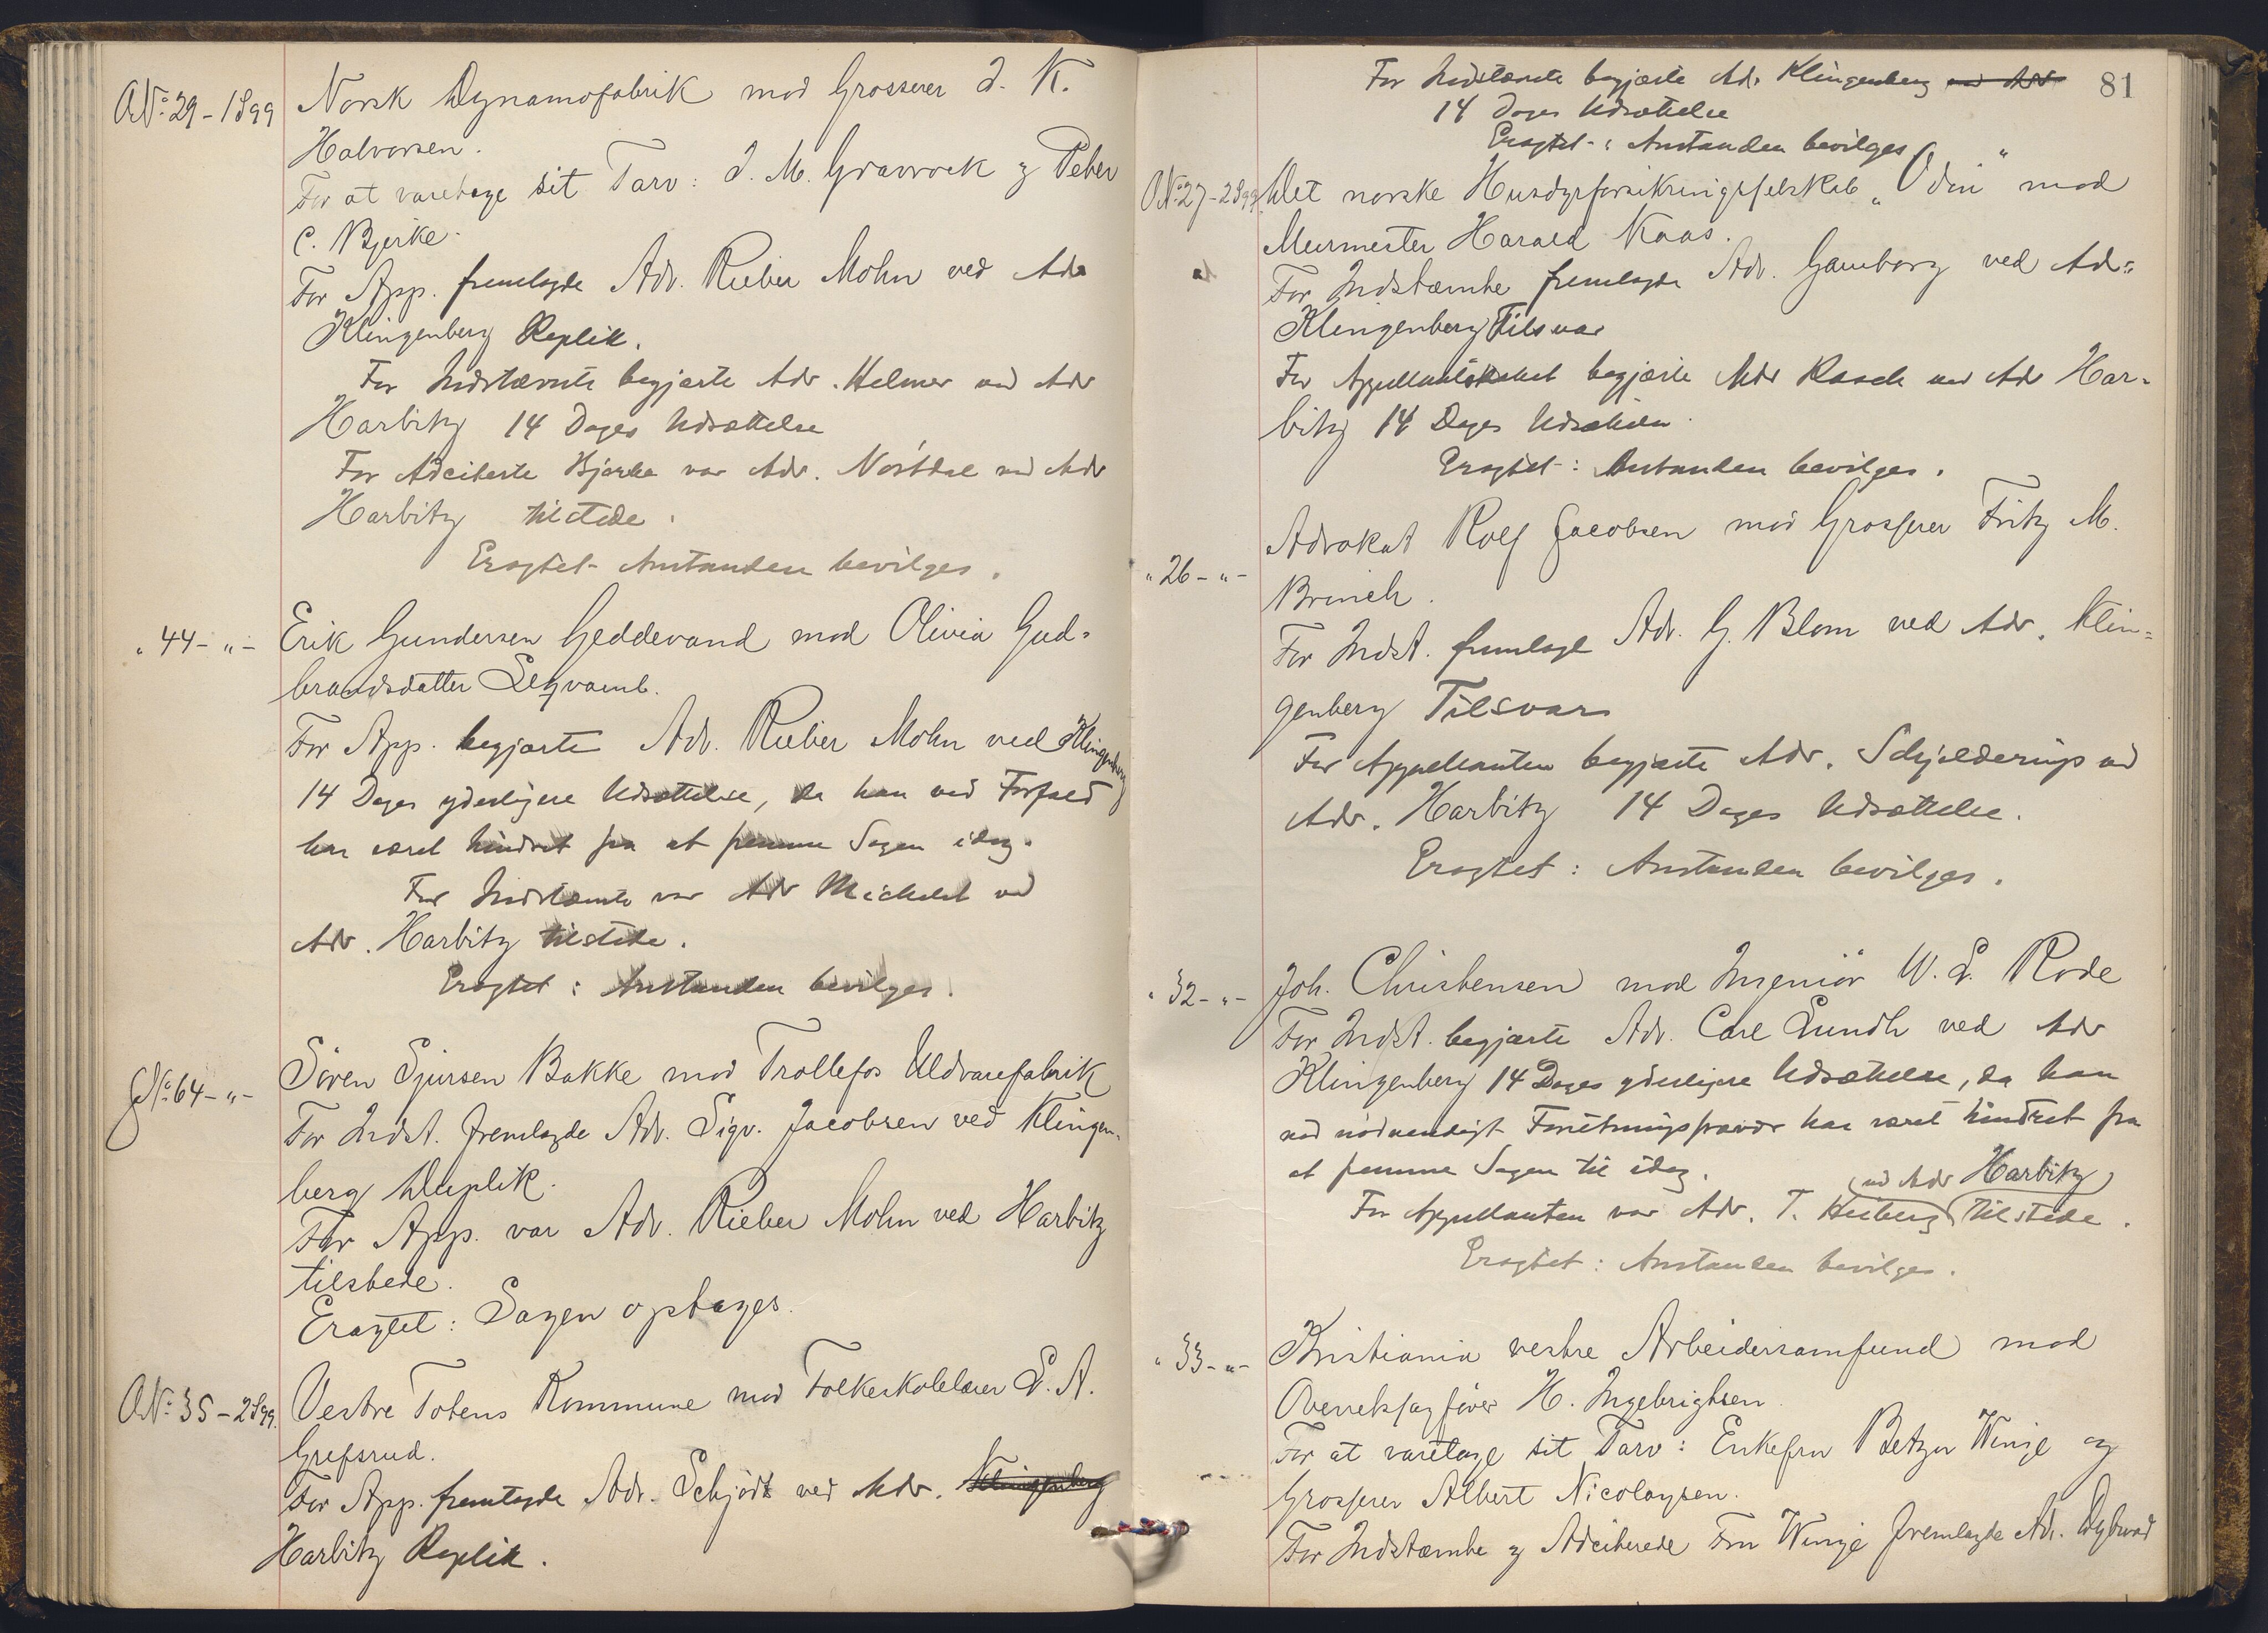 A.No: 29-1899 Norsk Dynamofabrik mod Grosserer J. K.
Halvorsen.
For at varetage sit Tarv: J. M. Gravrock og Peter
C. Bjerke.
For App. fremlagde Adv. Rieber Mohn ved Adv
Klingenberg Replik.
For Indstævnte begjærte Adv. Helmer ved Adv
Harbitz 14 Dages Udsættelse
For Adciterte Bjerke var Adv. Nørstdal ved Adv
Harbitz tilstede.
Eragtet - Anstanden bevilges.
" 44 - " - Erik Gundersen Geddevand mod Olivia Gud-
brandsdatter
For App. begjærte Adv. Rieber Mohn ved Klingenberg
14 Dages yderligere Udsættelse, da han ved Forfald
har været hindret fra at fremme Sagen idag.
For Indstævnte var Adv Michelet ved
Adv. Harbitz tilstede.
Eragtet: Anstanden bevilges.
G.No: 64 - " - Søren Sjursen Bakke mod Trollefos Uldvarefabrik
For Indst. fremlagde Adv. Sigv. Jacobsen ved Klingen-
berg Duplik.
For App. var Adv. Rieber Mohn ved Harbitz
tilstede.
Eragtet: Sagen optages.
A.No: 35-2899. Vestre Totens Kommune mod Folkeskolelærer L. A.
Grefsrud.
For App. fremlagde Adv. Schjødt ved Adv. Klingenberg
Harbitz Replik.
81
For Indstævnte begjærte Adv. Klingenberg ved Adv
14 Dages Udsættelse
Eragtet: Anstanden bevilges
A.No: 27-2899. Det norske Husdyrforsikringsselskab „Odin" mod
Murmester Harald Kaas.
For Indstævnte fremlagde Adv. Gamborg ved Adv.
Klingenberg Tilsvar
For Appellantskabet begjærte Adv Rasch ved Adv Har-
bitz 14 Dages Udsættelse.
Eragtet: Anstanden bevilges.
" 26 - " - Advokat Rolf Jacobsen mod Grosserer Fritz M.
Brinch.
For Indst. fremlagde Adv. G. Blom ved Adv. Klin-
genberg Tilsvar
For Appellanten begjærte Adv. Schjelderup ved
Adv. Harbitz 14 Dages Udsættelse.
Eragtet: Anstanden bevilges.
" 32 - " - Joh. Christensen mod Ingeniør W. L. Rode
For Indst. begjærte Adv. Carl Lundh ved Adv
Klingenberg 14 Dages yderligere Udsættelse, da han
ved nødvendigt Forretningsfravær har været hindret fra
at fremme Sagen til idag.
ved Adv Harbitz
For Appellanten var Adv. T. Heiberg tilstede.
Eragtet: Anstanden bevilges.
" 33 - " - Kristiania vestre Arbeidersamfund mod
Overretssagfører H. Ingebrigtsen
For at varetage sit Tarv: Enkefru Betzy Winge og
Grosserer Albert Nicolaysen.
For Indstævnte og Adciterede Fru Winge fremlagde Adv. Dybwad